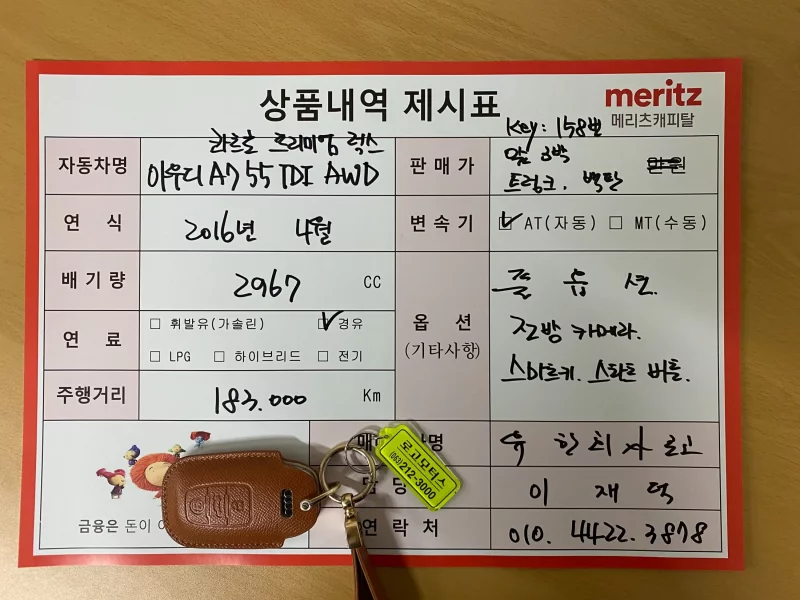 상품내역 제시표
meritz
메리츠캐피탈
Key: 158번
자동차명
프리미엄 럭스
아우디 A7 55 TDI AWD
판 매 가
트렁크. 백판
만원
연 식
2016년 4월
변 속 기
☑ AT(자동) ☐ MT(수동)
배 기 량
2967 CC
풀 옵 션.
연 료
☐ 휘발유(가솔린) ☑ 경유
☐ LPG ☐ 하이브리드 ☐ 전기
옵 션
(기타사항)
전방 카메라.
스마트키. 스타트 버튼.
주행거리
183.000 Km
매
명
로고모터스
(063)212-3000
담 당
이 재 덕
금융은 돈이
연 락 처
010. 4422. 3878